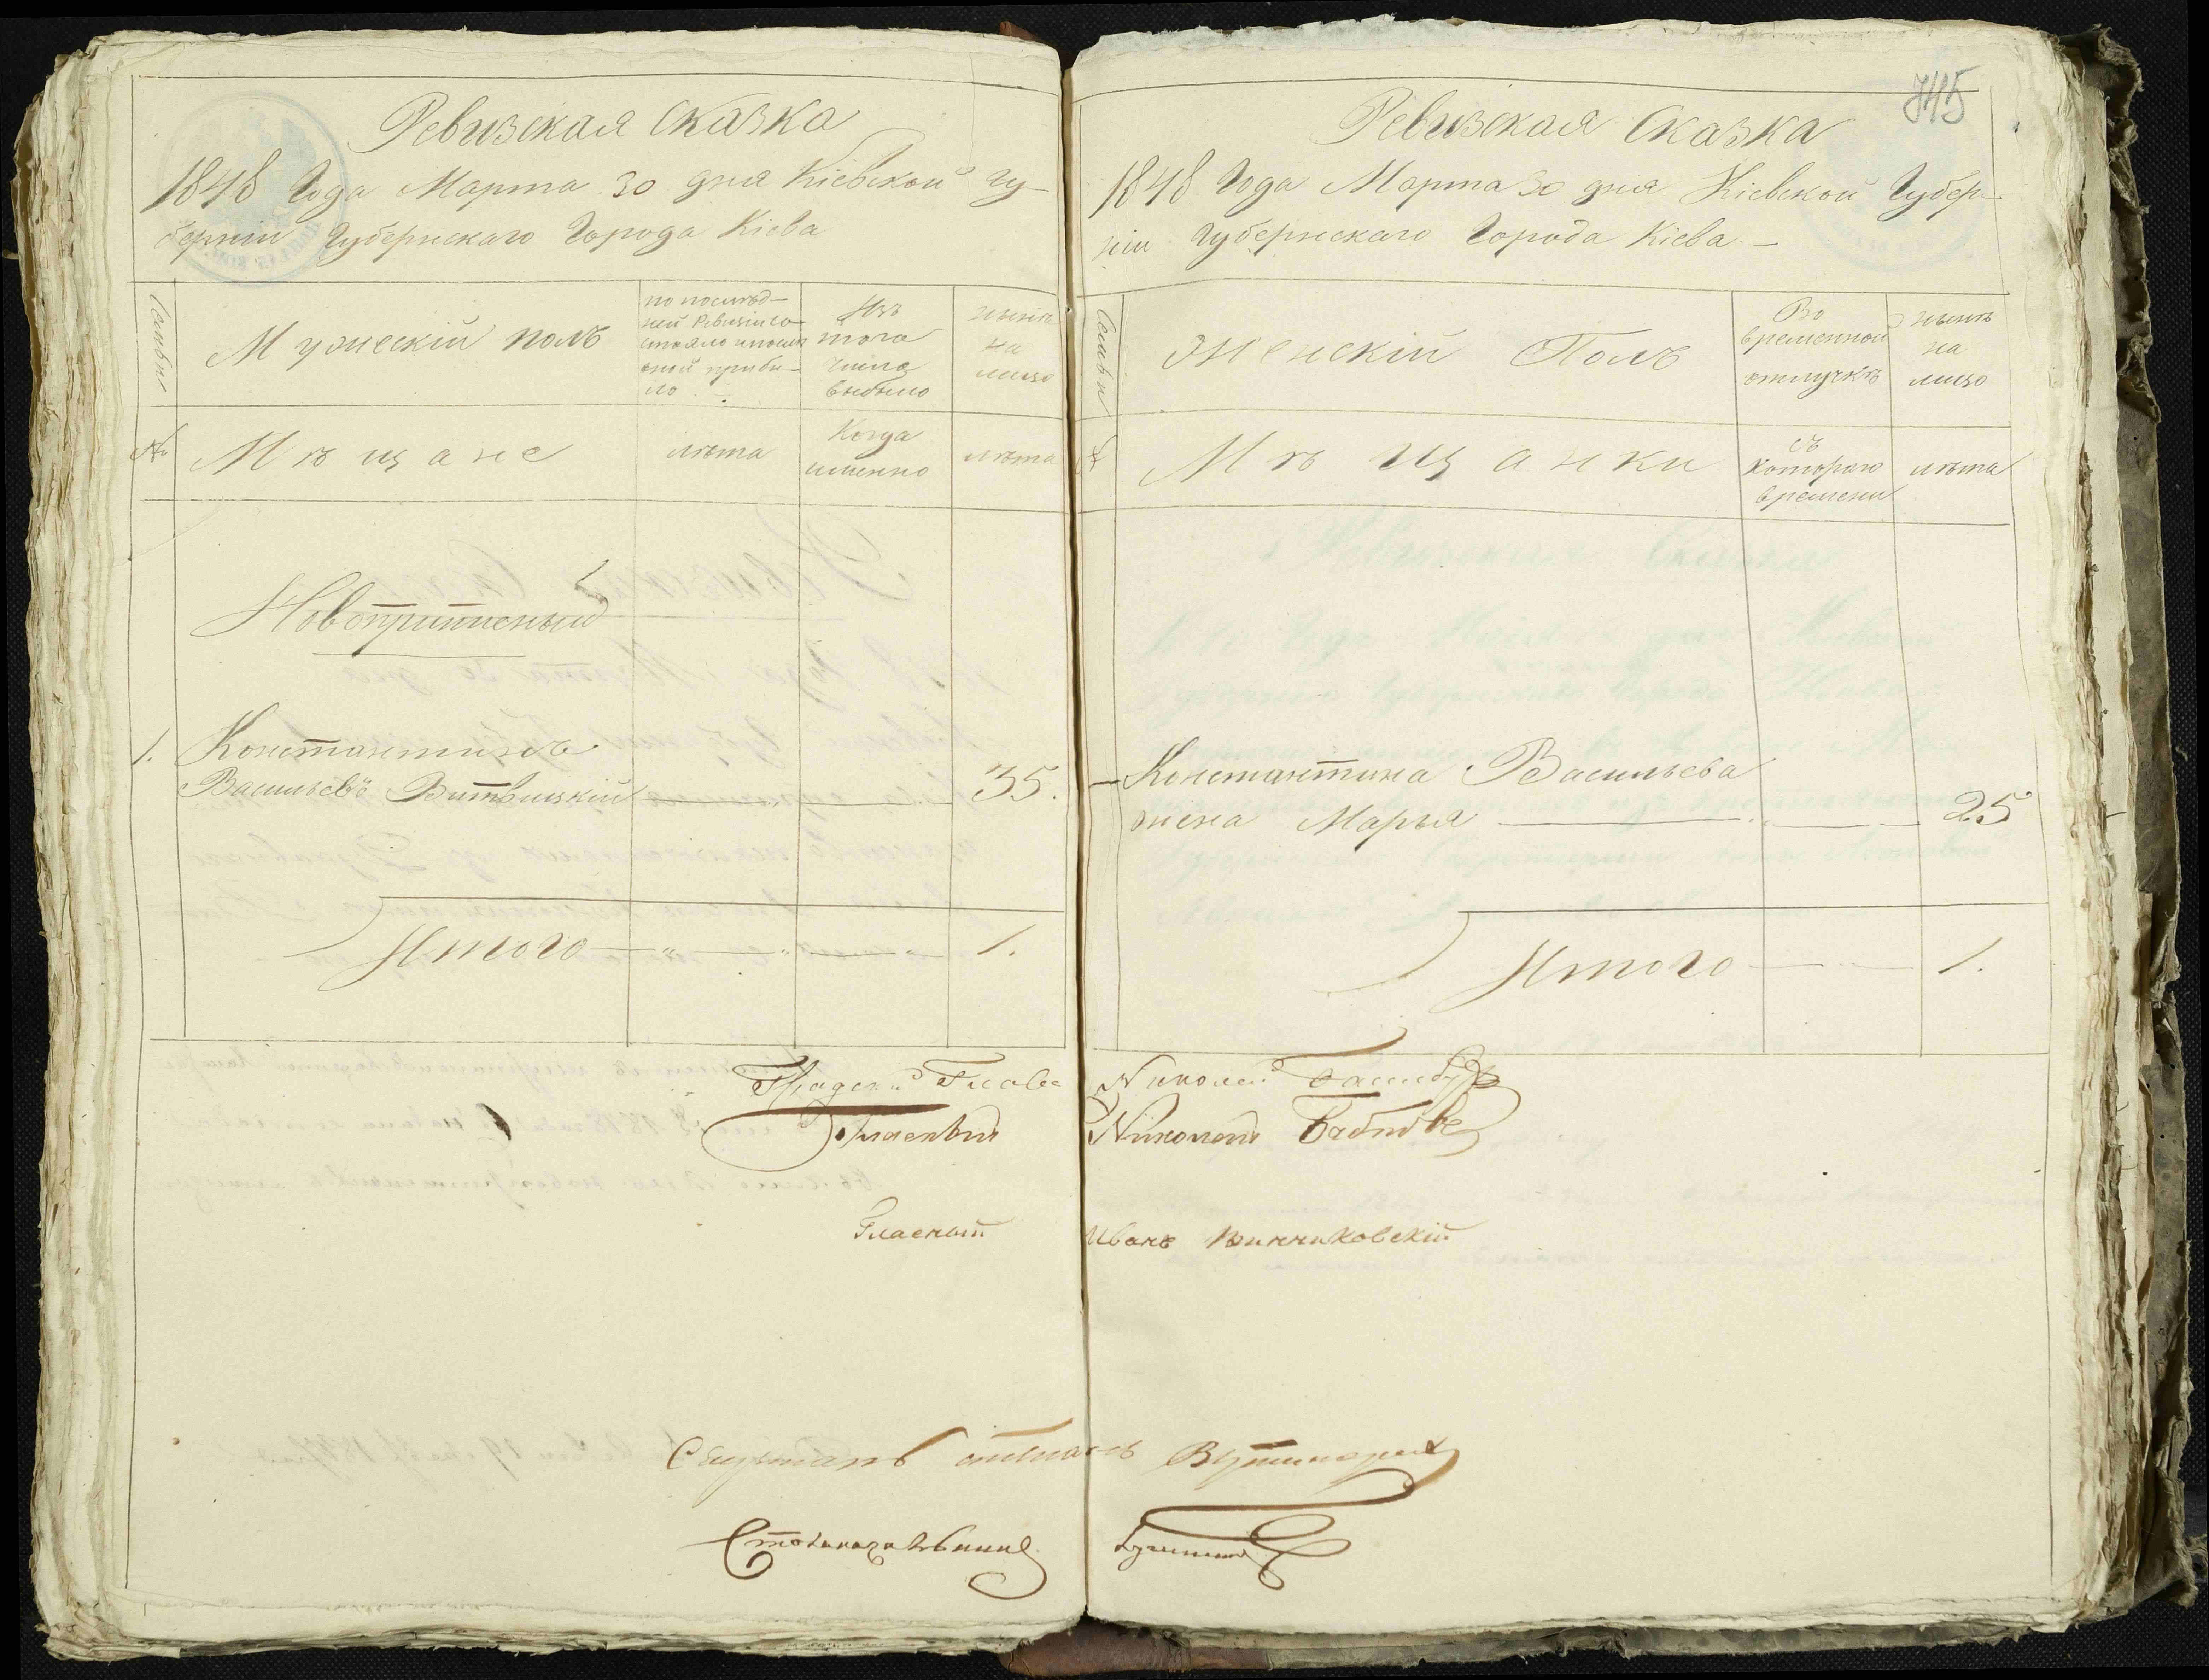 Ревизская Сказка
1848 Года Марта 30 дня Кіевской гу-
берніи Губернскаго Города Кіева
Семьи
Мужескій полъ
по послѣд-
ней Ревизіи со-
стояло и послѣ
оной прибы-
ло
Изъ
того
числа
выбыло
нынѣ
на
лицо
№
Мѣщане
лѣта
Когда
именно
лѣта
Новоприписный
1. Константинъ
Васильевъ Витвицкій 35.
Итого 1.
745
Ревизская Сказка
1848 Года Марта 30 дня Кіевской Губер-
ніи Губернскаго Города Кіева
Семьи
Женскій Полъ
Во
временной
отлучкѣ
нынѣ
на
лицо
№
Мѣщанки
съ
котораго
времени
лѣта
Константина Васильева
жена Марья 25
Итого 1.
Градскій Глава Николай
Гласный Николай
Гласный Иванъ Винниковскій
Столоначальникъ